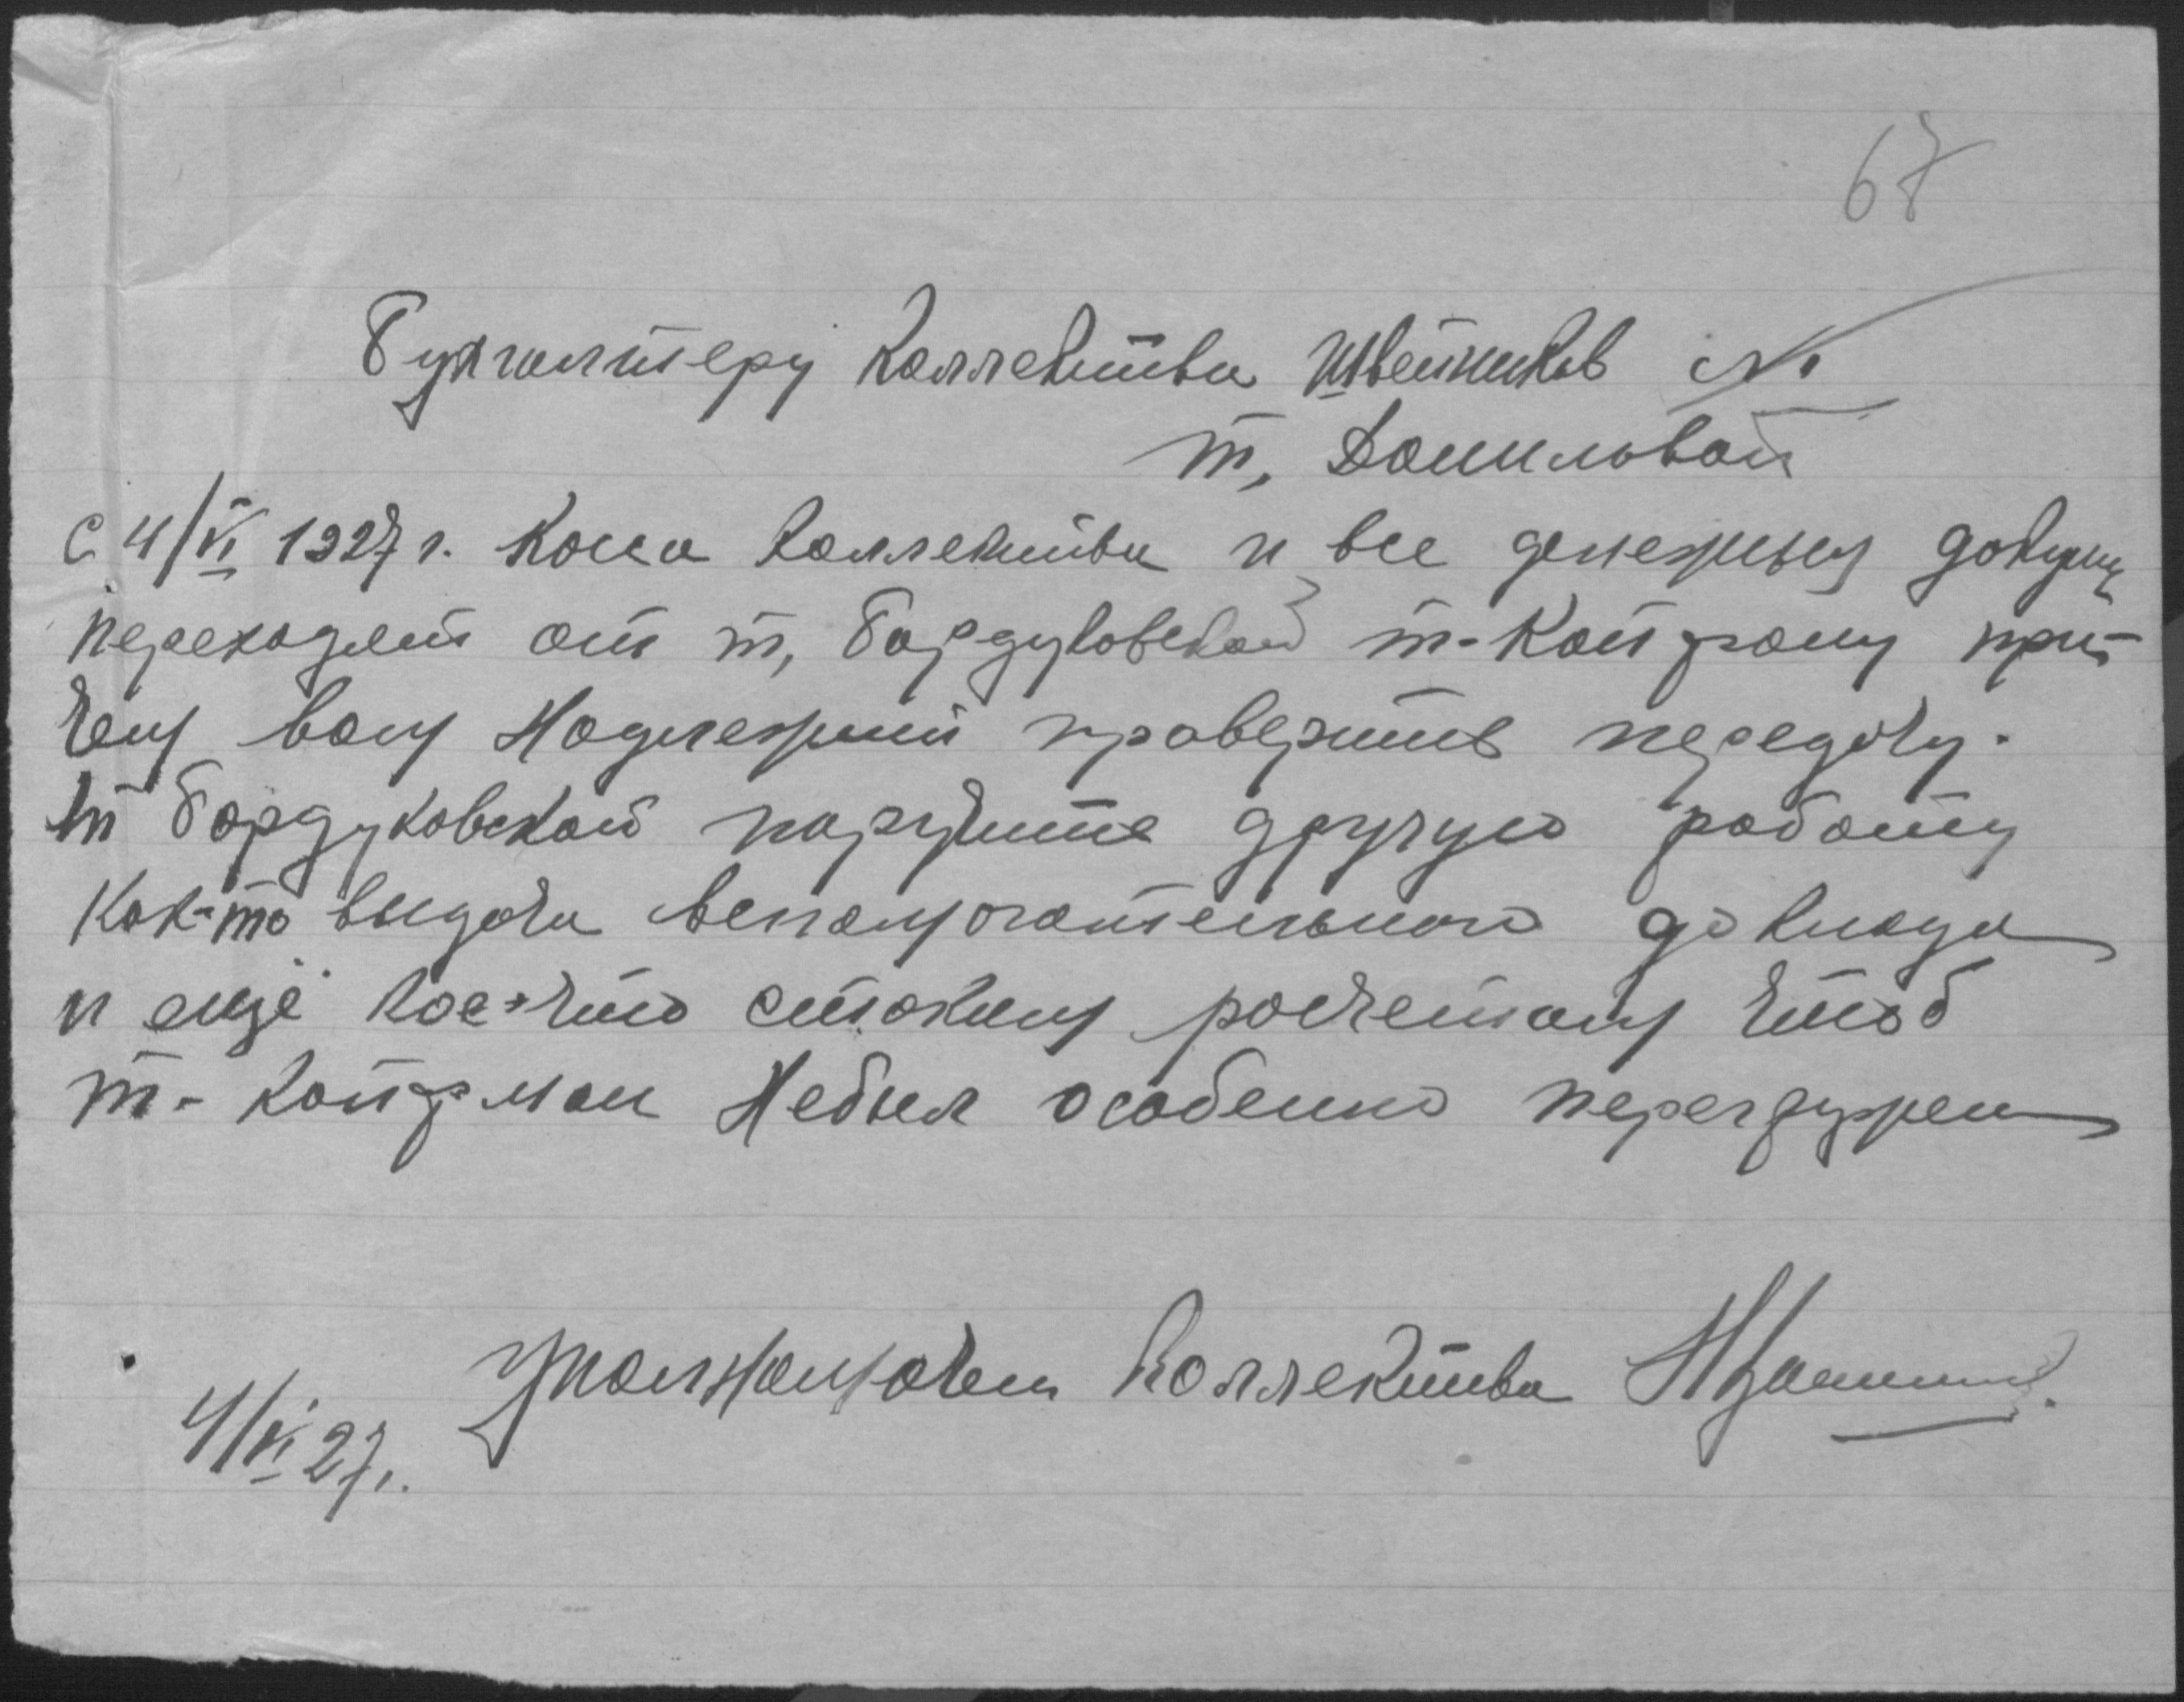 67
Бухгалтеру Коллектива Швейников №
т, Даниловой
с 4/VI 1927 г. Касса Коллектива и все денежныя докумен
переходят от т, Бардуковской т-Кайтрону при-
чему вам Надлежит проверить передачу.
т Бардуковской поручите другую работу
Как-то выдачи вспомогательного до
и ещё кое-что с таким расчетом чтоб
т- Кайтрман Небыл особенно перегружен
Уполномочен Коллектива
4/VI 27г.